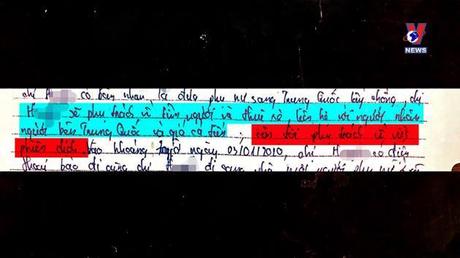 NEWS
chị H có bảo nhau, là đưa phụ nữ sang Trung Quốc lấy chồng, chị
H sẽ phụ trách về tìm người và thuê xe, liên hệ với người nhận
người bên Trung Quốc và giá cả tiền ; còn tôi phụ trách về việc
phiên dịch. Vào khoảng ngày chị H có điện
thoại bảo đi cùng chị H đi sang nhà một người phụ nữ ở